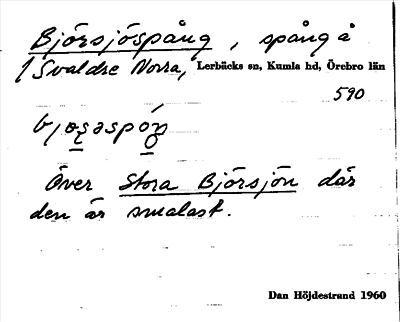 Björsjöspång, spång å
/Svaldre Norra, Lerbäcks sn, Kumla hd, Örebro län
590
Över Stora Björsjön där
den är smalast.
Dan Höjdestrand 1960